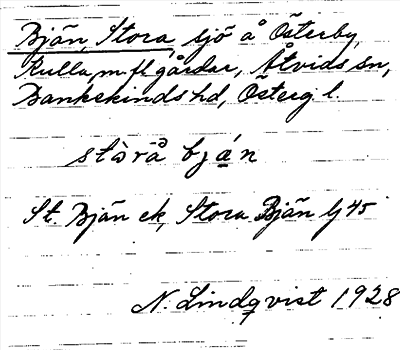 Bjän, Stora, sjö å Österby,
Kulla, m. fl. gårdar, Åtvids sn,
Bankekinds hd, Österg. l.
stòrå bjá̱n
St. Bjän ek, Stora Bjän Gj 45
N. Lindqvist 1928